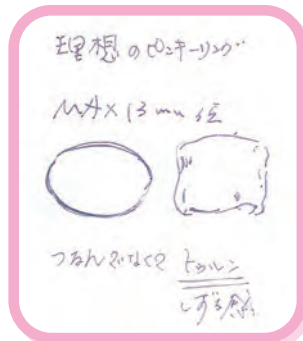 理想のピンキーリング
MAX 13mm 位
つるんでなくて
トゥルン
しずる感